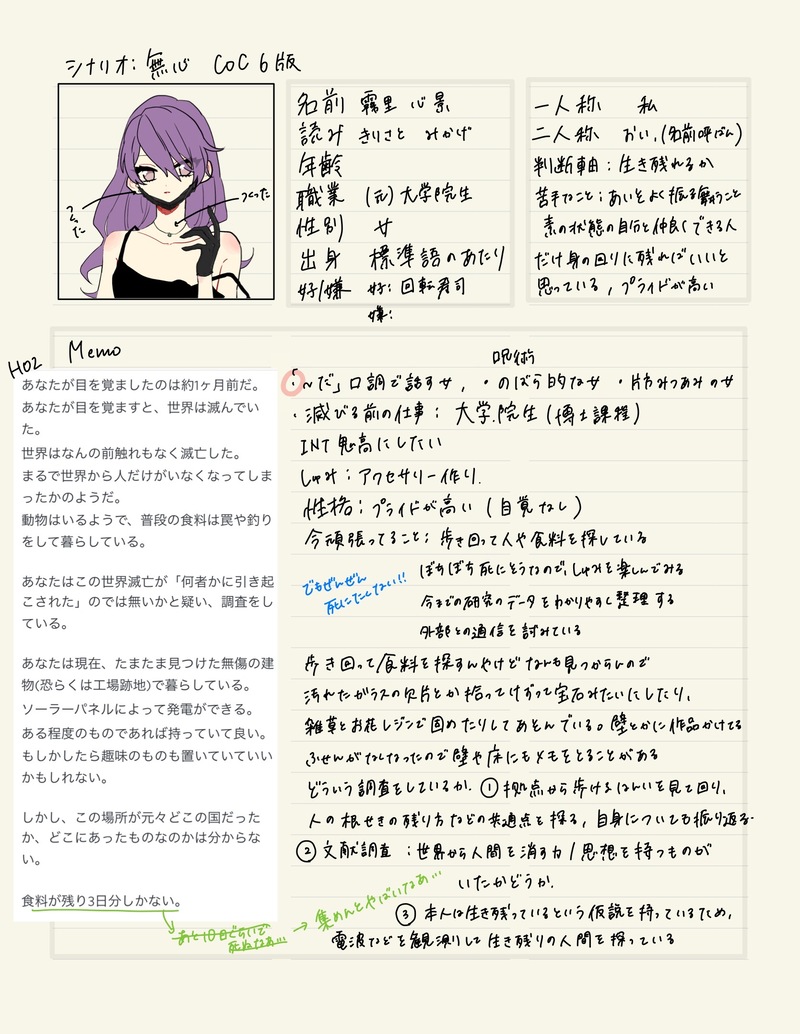 シナリオ:無心 CoC6版
つくった
つくった
名前 霧里 心景
読み きりさと みかげ
年齢
職業 (元)大学院生
性別 女
出身 標準語のあたり
好/嫌 好:回転寿司
嫌:
一人称 私
二人称 おい、(名前呼ばん)
判断軸:生き残れるか
苦手なこと:あいそよく振る舞うこと
素の状態の自分と仲良くできる人
だけ身の回りに残ればいいと
思っている, プライドが高い
HO2
Memo
あなたが目を覚ましたのは約1ヶ月前だ。
あなたが目を覚ますと、世界は滅んでい
た。
世界はなんの前触れもなく滅亡した。
まるで世界から人だけがいなくなってしま
ったかのようだ。
動物はいるようで、普段の食料は罠や釣り
をして暮らしている。
あなたはこの世界滅亡が「何者かに引き起
こされた」のでは無いかと疑い、調査をし
ている。
あなたは現在、たまたま見つけた無傷の建
物(恐らくは工場跡地)で暮らしている。
ソーラーパネルによって発電ができる。
ある程度のものであれば持っていて良い。
もしかしたら趣味のものも置いていていい
かもしれない。
しかし、この場所が元々どこの国だった
か、どこにあったものなのかは分からな
い。
食料が残り3日分しかない。
あと10日ぐらいで
死ぬなぁ…
→ 集めんとやばいなぁ…
呪術
・「~だ」口調で話す女, ・のばら的な女 ・片みつあみの女
・滅びる前の仕事: 大学院生(博士課程)
INT鬼高にしたい
しゅみ:アクセサリー作り.
性格:プライドが高い(自覚なし)
今頑張ってること;歩き回って人や食料を探している
ぼちぼち死にそうなので、しゅみを楽しんでみる
でもぜんぜん
死にたくない!!
今までの研究のデータをわかりやすく整理する
外部との通信を試みている
歩き回って食料を探すんやけどなんも見つからんので
汚れたガラスの欠片とか拾ってけずって宝石みたいにしたり、
雑草とお花レジンで固めたりしてあそんでいる。壁とかに作品かけてる
ふせんがなくなったので壁や床にもメモをとることがある
どういう調査をしているか. ①拠点から歩けるはんいを見て回り、
人の痕せきの残り方などの共通点を探る, 自身についても振り返る.
②文献調査:世界から人間を消す力/思想を持つものが
いたかどうか.
③本人は生き残っているという仮説を持っているため,
電波などを観測して生き残りの人間を探っている